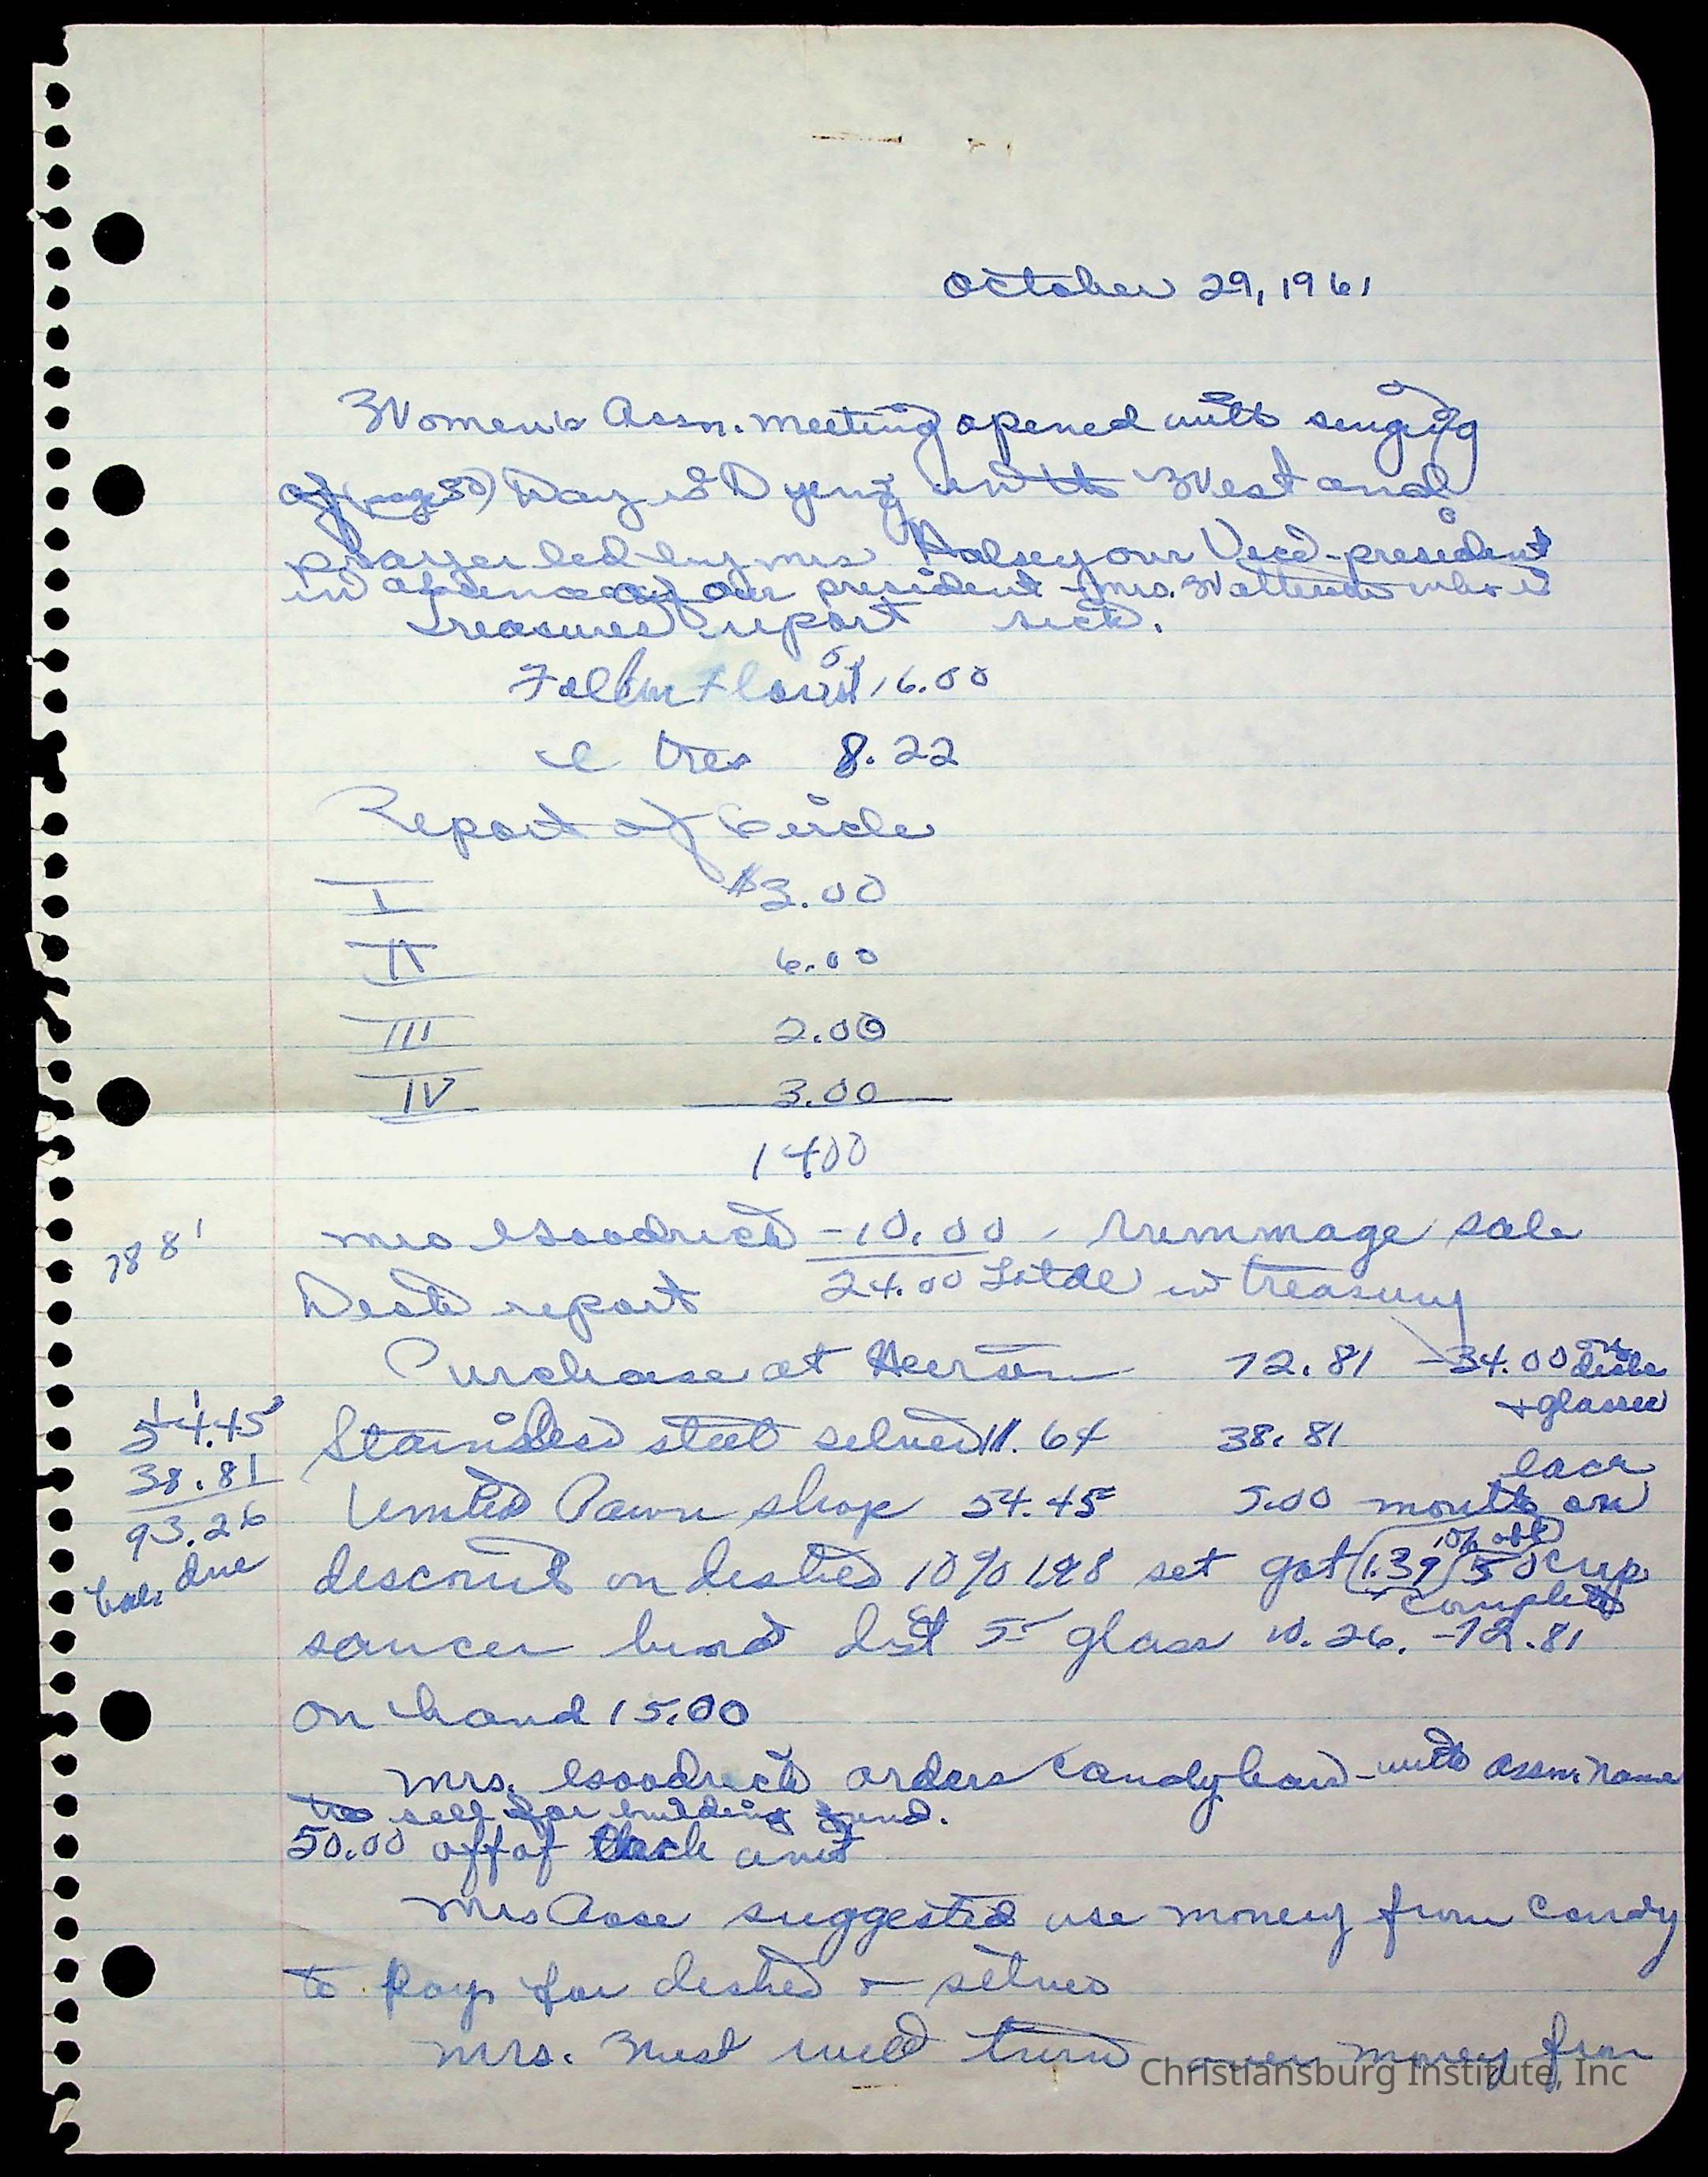 October 29, 1961
Women's Assn. meeting opened with singing
of (page 50) Day is Dying in the West and
prayer led by mrs Halsey our Vice-president
in absence of our president - mrs. who is
Treasures report sick.
Florist 16.00
tres 8.22
Report of Circle
I $3.00
II 6.00
III 2.00
IV 3.00
1400
mrs Goodrich - 10.00 - rummage sale
24.00 Total in treasury
788'
Dish report
Purchase at Heer 72.81 - 34.00 on dishe
+ glasses
Stainless steel silver 11.64 38.81
54.45
38.81
93.26
bal. due
United Pawn shop 54.45 5.00 each month on
discount on dishes 10% 198 set got (1.39) 10% off 50 cup
complete
saucer bread dist 5 glass 10.26. - 72.81
on hand 15.00
Mrs. Goodrich orders candy bars - with assn. name
to sell for building fund.
50.00 off of
Mrs Rose suggested use money from candy
to pay for dishes + silver
Mrs. West will turn over money from
Christiansburg Institute, Inc